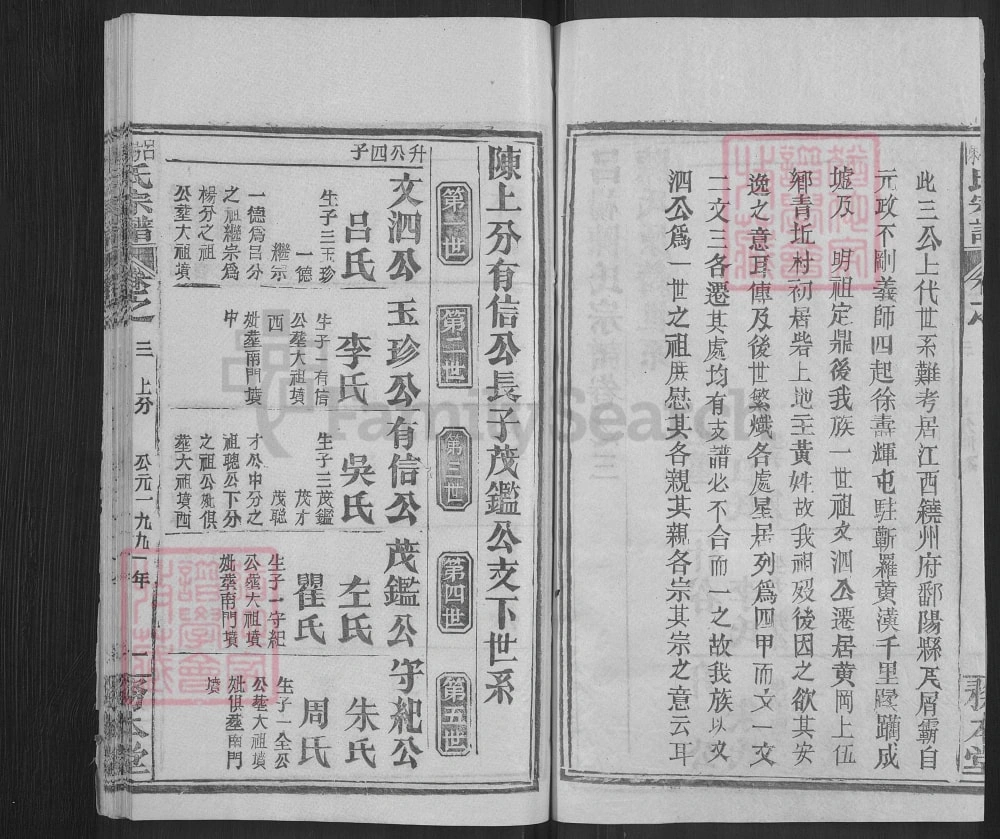 此三公上代世系難考居江西鐃州府鄱陽縣瓦屑霸自
元政不剛義師四起徐壽輝屯駐蘄羅黃漢千里蹂躪成
墟及 明祖定鼎後我族一世祖文泗公遷居黃岡上伍
鄉青坵村初居砦上地主黃姓故我祖歿後因之欲其安
逸之意耳傳及後世繁熾各處星居列為四甲而文一文
二文三各遷其處均有支譜必不合而一之故我族以文
泗公為一世之祖庶慰其各親其親各宗其宗之意云耳
陳上分有信公長子茂鑑公支下世系
第一世
第二世
第三世
第四世
第五世
升公四子
文泗公
呂氏
生子三玉珍
一德
繼宗
一德為呂分
之祖繼宗為
楊分之祖
公塟大祖墳
玉珍公
李氏
生子一有信
公塟大祖墳
西
妣塟南門墳
中
有信公
吳氏
生子三茂鑑
茂才
茂聰
才公中分之
祖聰公下分
之祖公妣俱
塟大祖墳西
茂鑑公
左氏
瞿氏
生子一守紀
公塟大祖墳
妣塟南門墳
守紀公
朱氏
周氏
生子一全公
公塟大祖墳
妣俱塟南門
墳
氏宗譜
卷之
三
上分
公元一九九一年
一
務本堂
FamilySearch